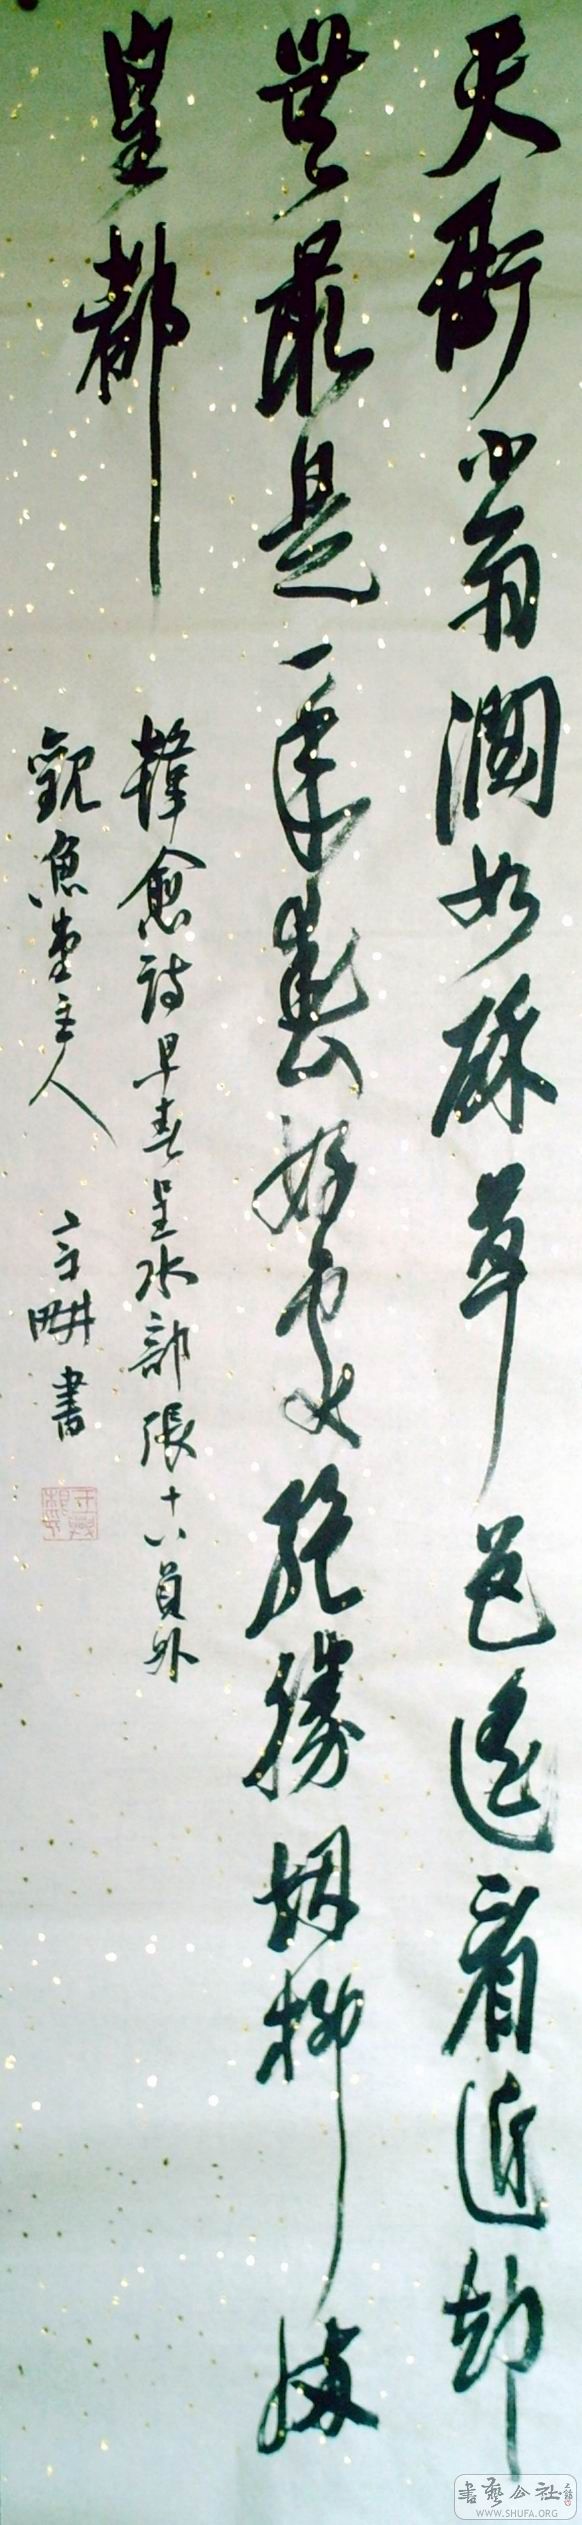 天街小雨潤如酥草色遙看近却
無最是一年春好處絕勝煙柳滿
皇都
韓愈詩早春呈水部張十八員外
觀魚堂主人 書
書藝公社
WWW.SHUFA.ORG